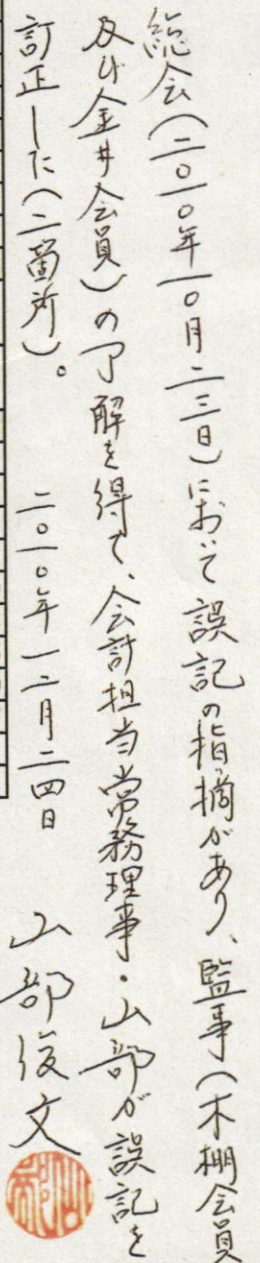 総会(二〇一〇年一〇月二三日)において誤記の指摘があり、監事(木棚会員
及び金井会員)の了解を得て、会計担当常務理事・山部が誤記を
訂正した(二箇所)。
二〇一〇年一二月二四日
山部俊文